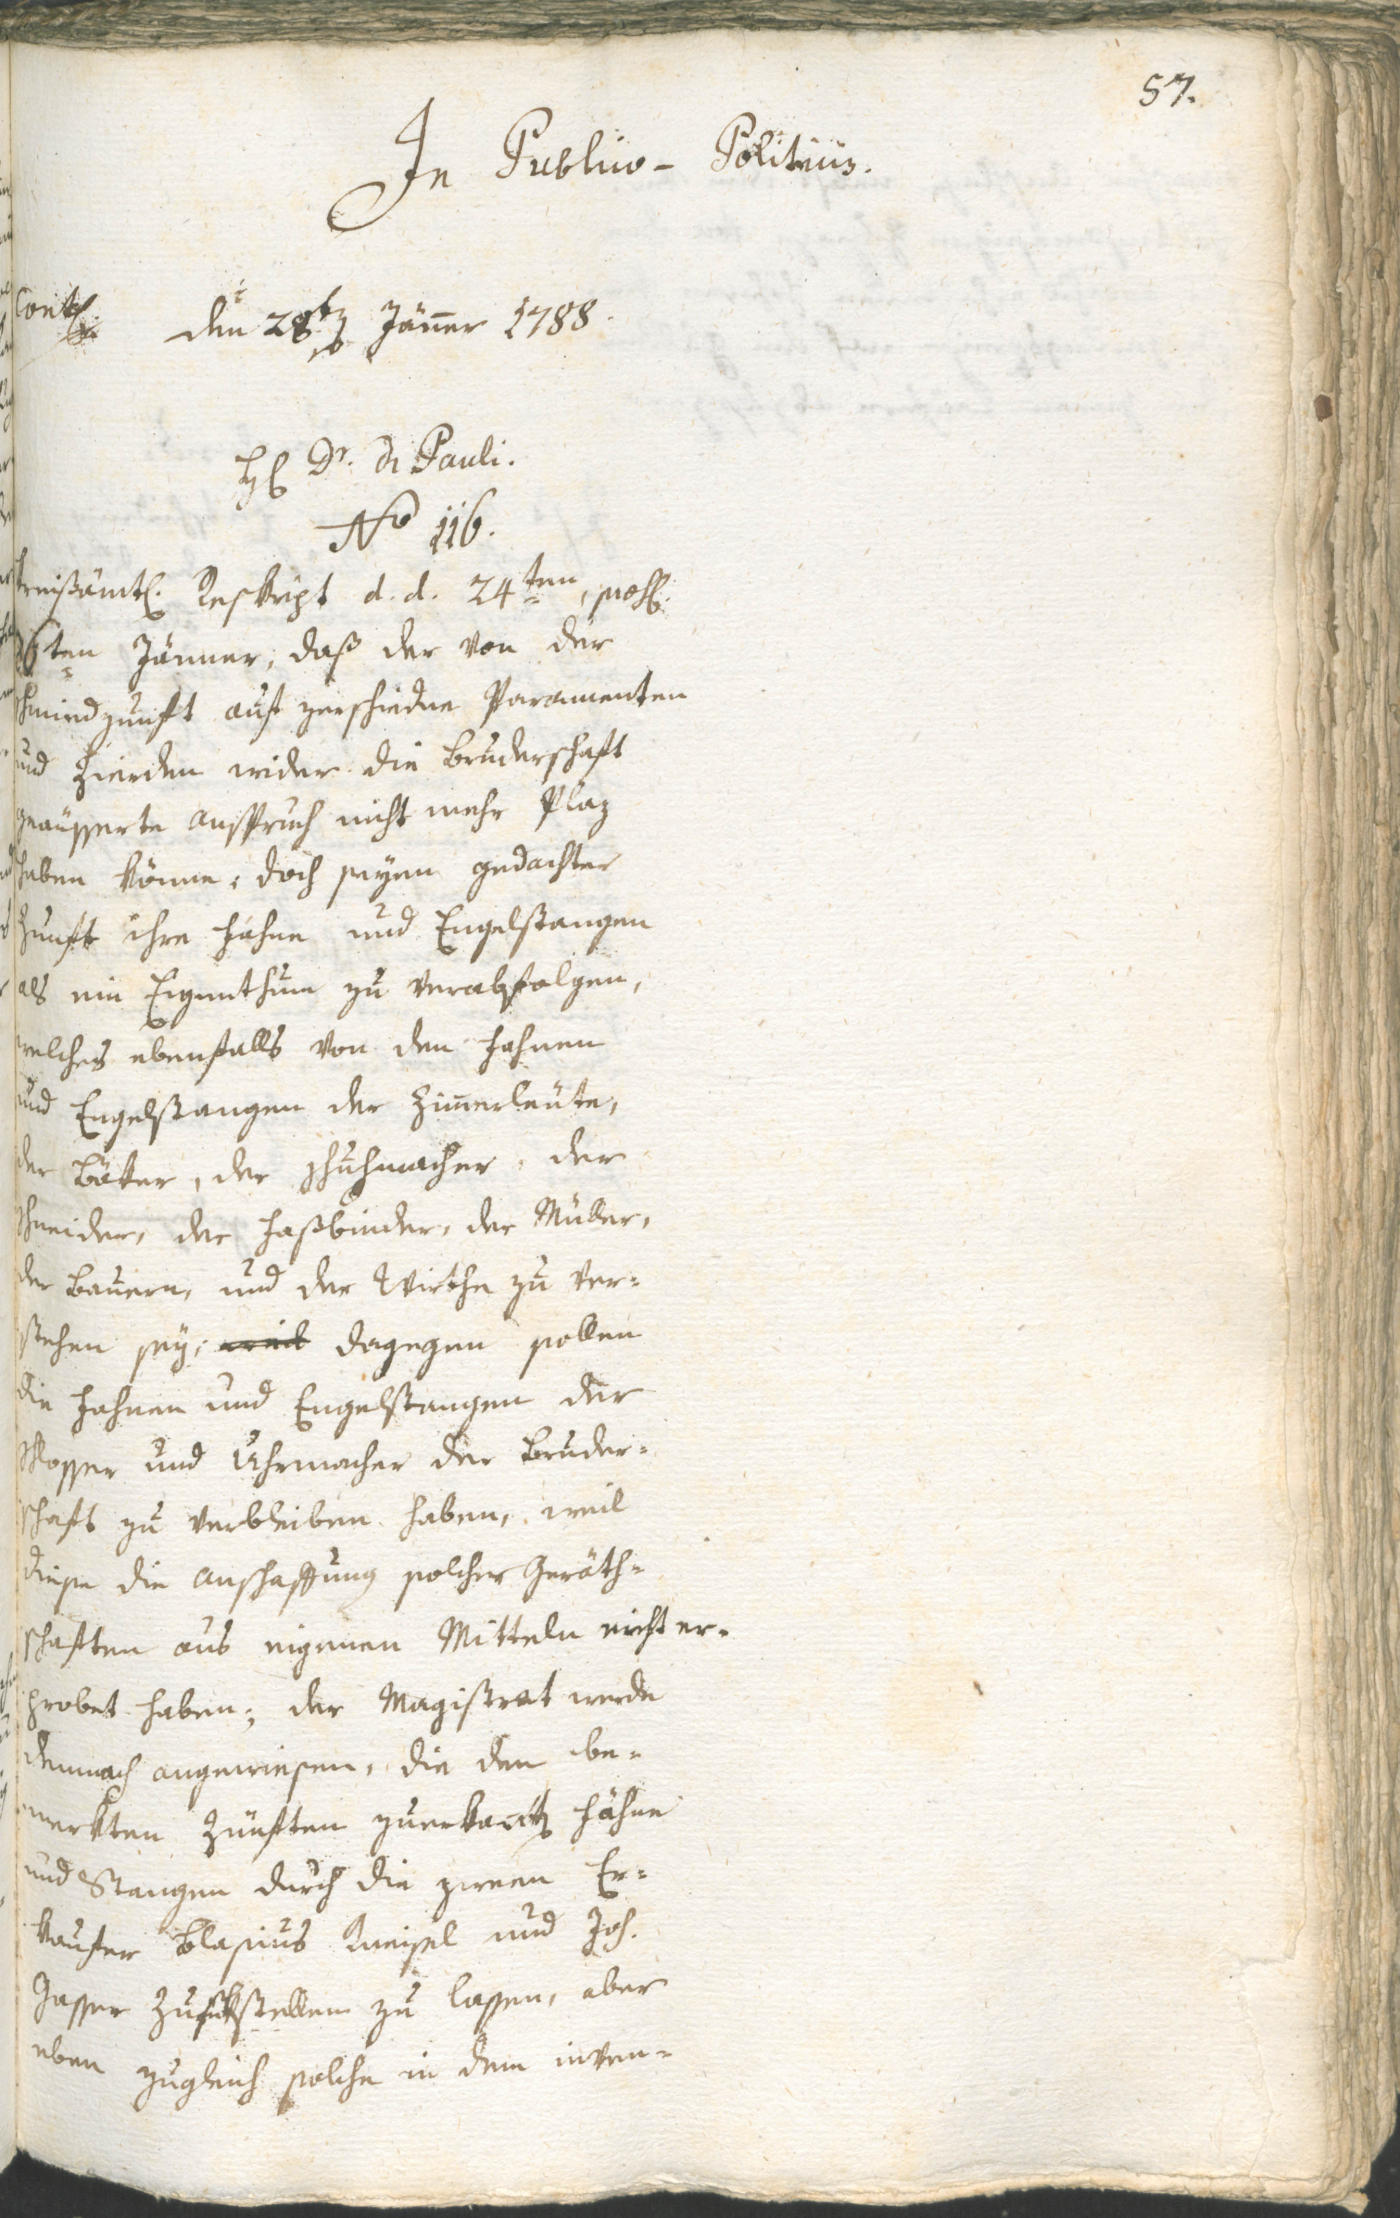 57.
In Publico-Politicis.
Cont.
den 28ten Jänner 1788.
H. Dr. di Pauli.
No 116.
Kreißämtl. Reskript d. d. 24ten, præs.
26ten Jänner, daß der von der
Schmiedzunft auf zerschiedne Paramenten
und Zierden wider die Bruderschaft
geäusserte Anspruch nicht mehr Plaz
haben könne, doch seyen gedachter
Zunft ihre Fahne und Engelstangen
als ein Eigenthum zu verabfolgen,
welches ebenfalls von den Fahnen
und Engelstangen der Zimerleüte,
der Bäker, der Schuhmacher, der
Schneider, der Faßbinder, der Müller,
der Bauern, und der Wirthe zu ver=
stehen sey; weil dagegen sollen
die Fahnen und Engelstangen der
Schlosser und Uhrmacher der Bruder=
schaft zu verbleiben haben, weil
diese die Anschaffung solcher Geräth=
schaften aus eigenen Mitteln nicht er=
probet haben; der Magistrat werde
demnach angewiesen, die den be=
merkten Zünften zuerkanten Fähne
und Stangen durch die zween Er=
kaufer Blasius Kneisel und Joh.
Gasser zurükstellen zu lassen, aber
eben zugleich solche in dem inven=